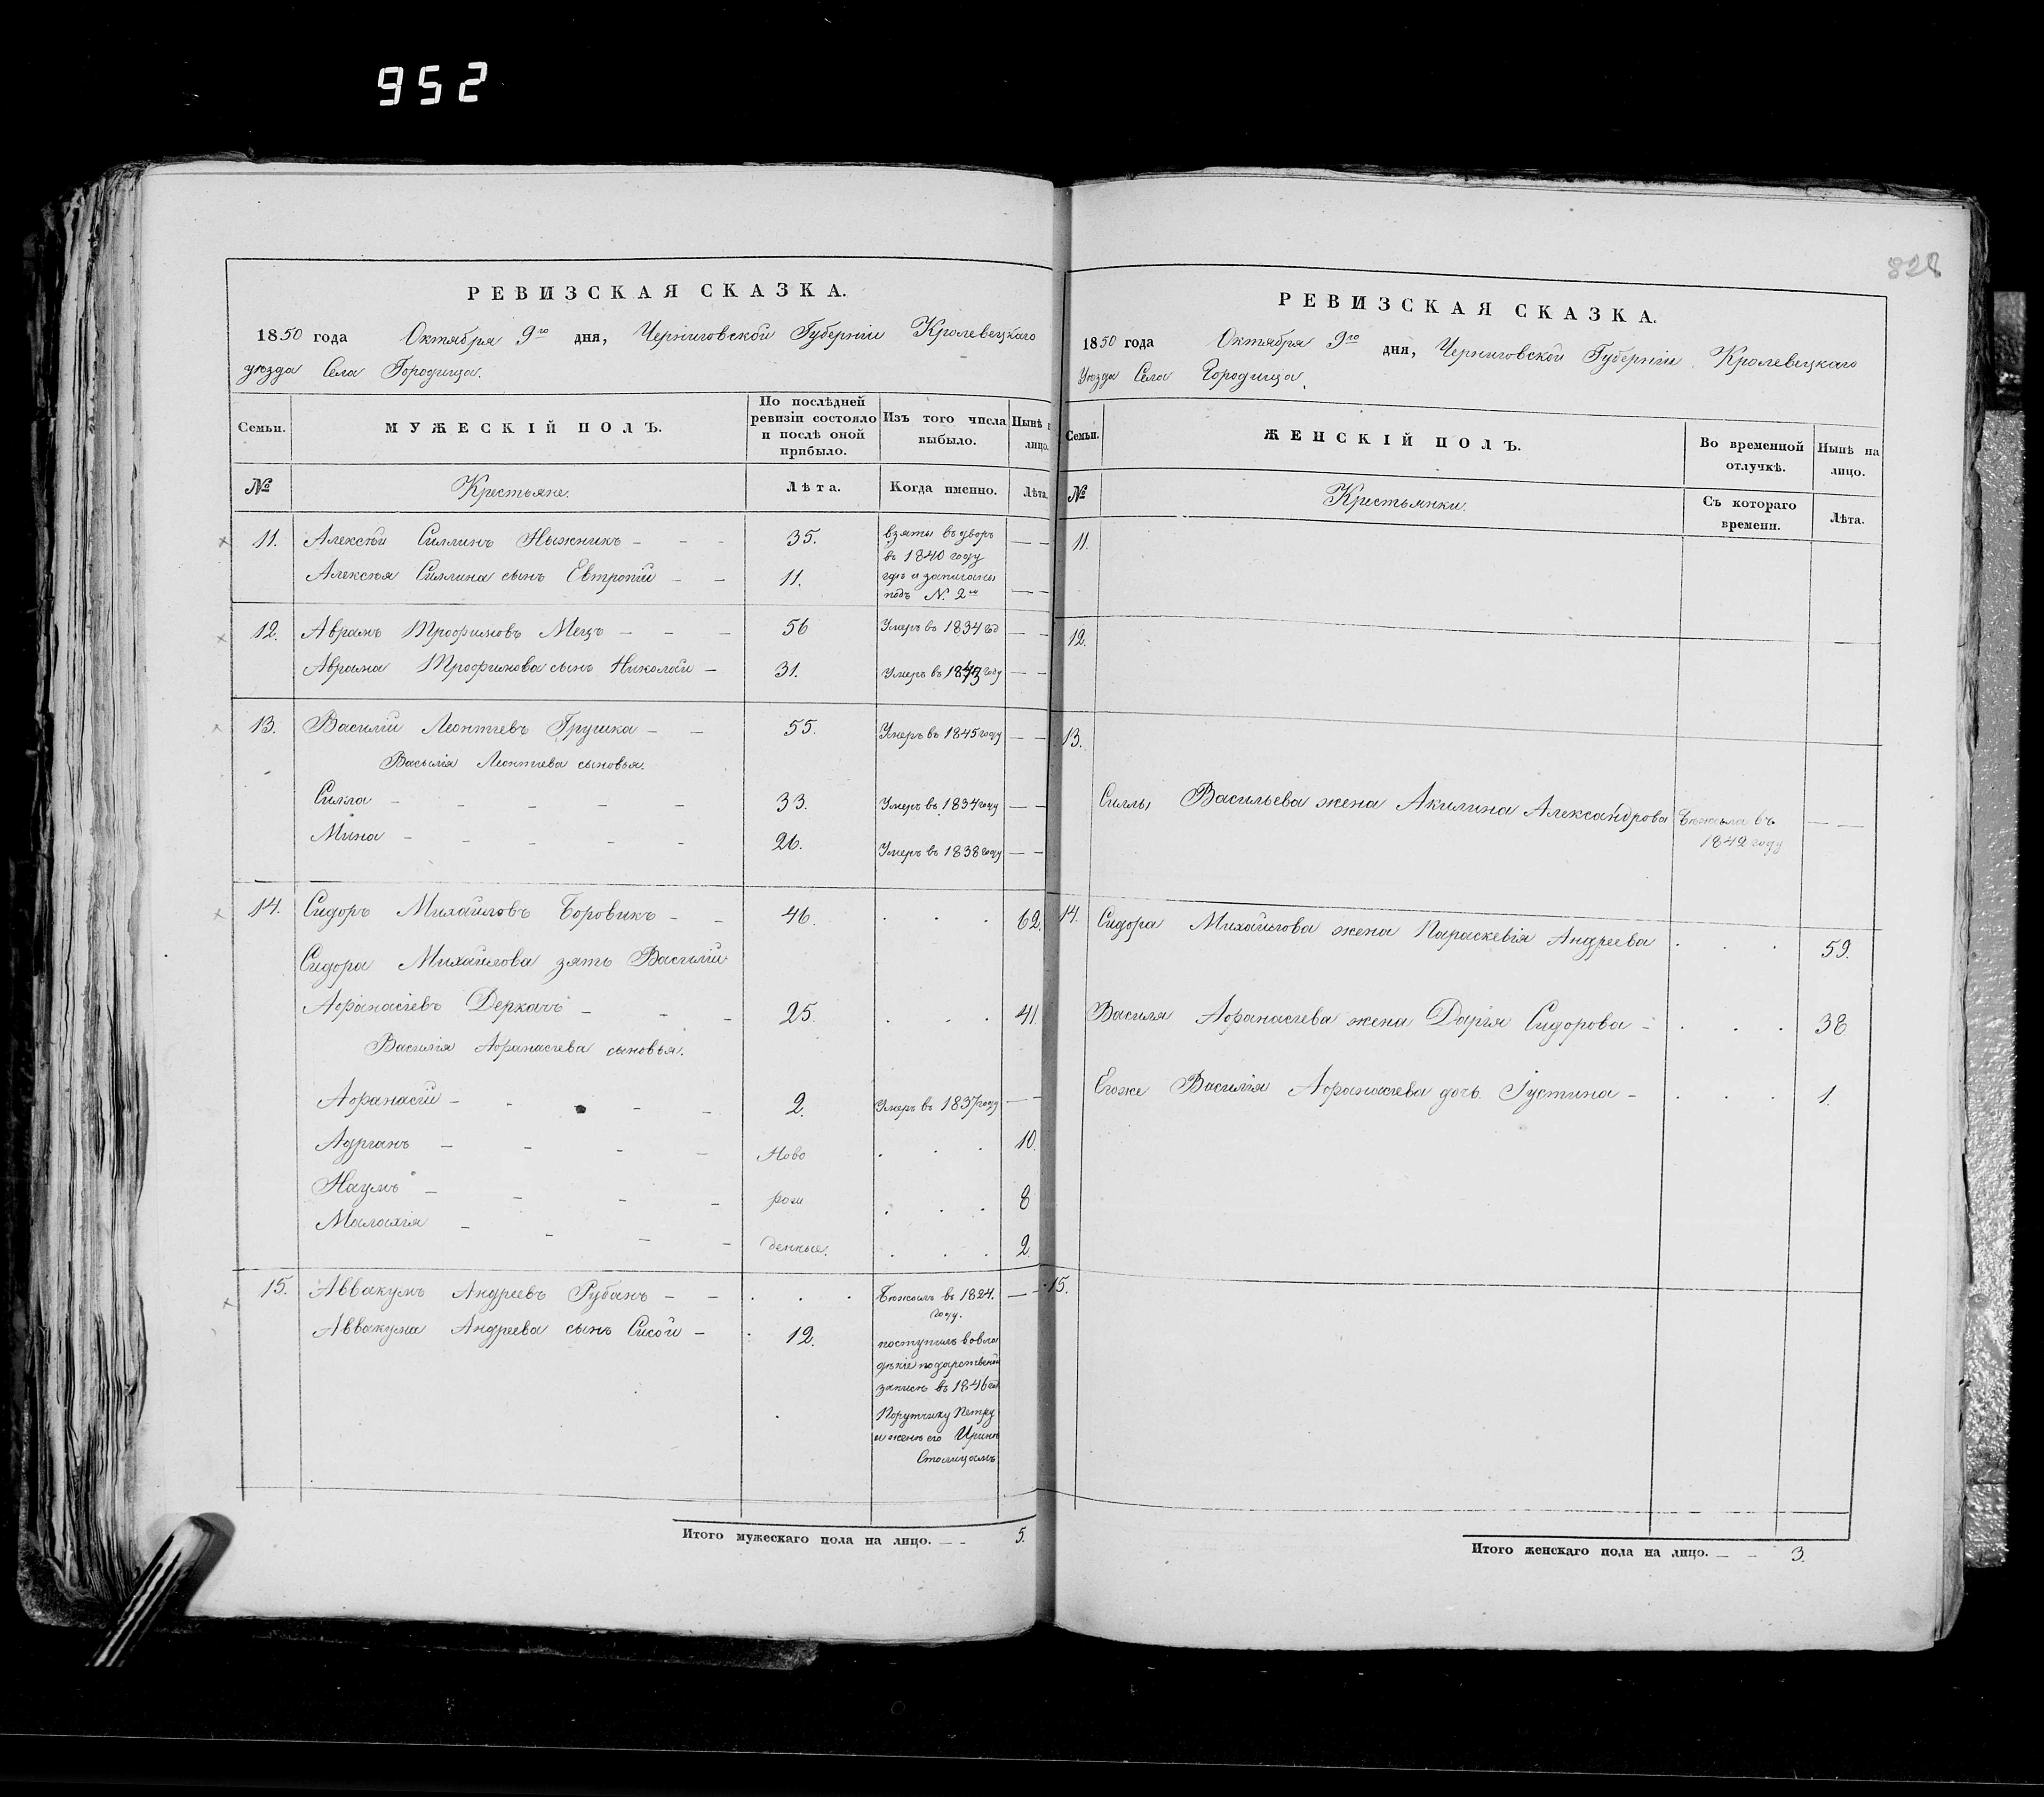 952
828
РЕВИЗСКАЯ СКАЗКА.
1850 года Октября 9го дня, Черниговской Губерніи Кролевецкаго
уѣзда Села Городища.
Семьи. МУЖЕСКІЙ ПОЛЪ. По послѣдней ревизіи состояло и послѣ оной прибыло. Изъ того числа выбыло. Нынѣ лицо.
№ Крестьяне. Лѣта. Когда именно. Лѣта.
11. Алексѣй Силлинъ Ныжникъ 35. взяты въ дворъ
въ 1840 году
Алексѣя Силлина сынъ Евтропій 11. гдѣ и записаны
подъ №. 2м
12. Аврамъ Трофимовъ Мецъ 56 Умеръ въ 1834 год
Аврама Трофимова сынъ Николай 31. Умеръ въ 1843 году
13. Василій Леонтіевъ Грушка 55. Умеръ въ 1845 году
Василія Леонтіева сыновья.
Силла 33. Умеръ въ 1834 году
Мина 26. Умеръ въ 1838 году
14. Сидоръ Михайловъ Боровикъ 46. 62.
Сидора Михайлова зять Василій
Афанасіевъ Деркачъ 25. 41.
Василія Афанасіева сыновья.
Афанасій 2. Умеръ въ 1837 году
Адріанъ Ново 10.
Наумъ рож 8
Малахія денные. 2.
15. Аввакумъ Андреевъ Рубанъ Бѣжалъ въ 1824.
году.
Аввакума Андреева сынъ Сисой 12. поступилъ во вла
дѣніе по дарственной
записи въ 1846 год
Порутчику Петру
и женѣ его Иринѣ
Столицамъ
Итого мужескаго пола на лицо. 5.
РЕВИЗСКАЯ СКАЗКА.
1850 года Октября 9го дня, Черниговской Губерніи Кролевецкаго
Уѣзда Села Городища.
Семьи. ЖЕНСКІЙ ПОЛЪ. Во временной отлучкѣ. Нынѣ на лицо.
№ Крестьянки. Съ котораго времени. Лѣта.
11.
12.
13.
Силлы Васильева жена Акилина Александрова Бѣжала въ
1842 году
14. Сидора Михайлова жена Параскевія Андреева 59.
Василя Афанасіева жена Дарія Сидорова 38
Егоже Василія Афанасіева дочь Іустина 1.
15.
Итого женскаго пола на лицо. 3.